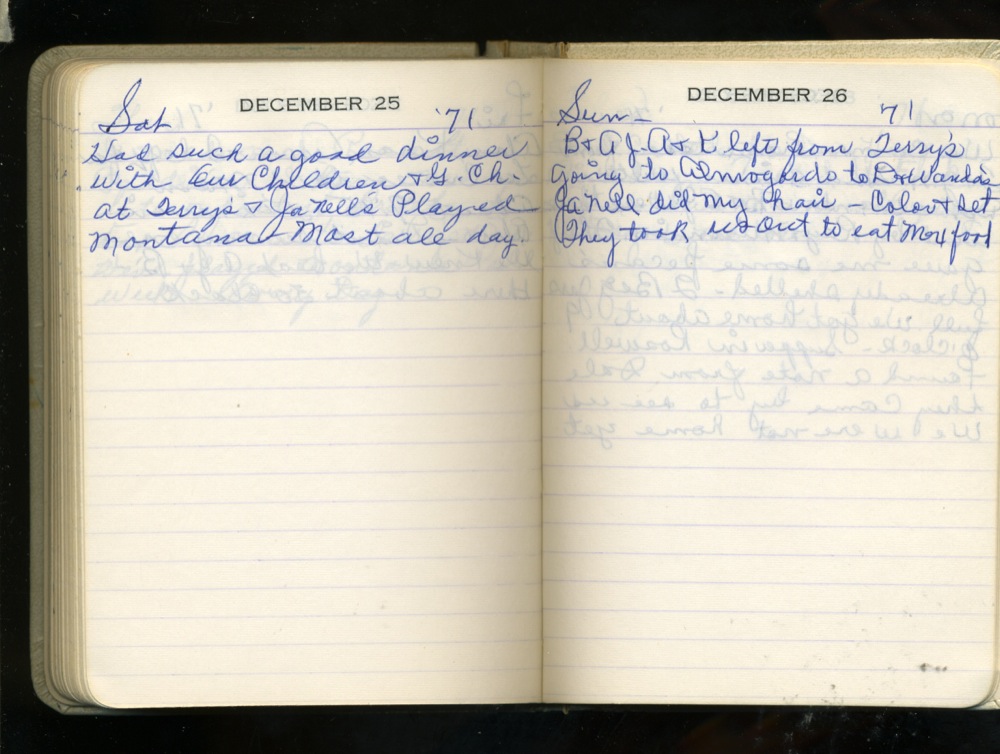 DECEMBER 25
Sat '71
Had such a good dinner
with our Children & G. Ch.
at Terry's & JaNell's Played
Montana Most all day.
DECEMBER 26
Sun- 71
B & A J. A & K left from Terry's
going to Almogardo to
JaNell did my hair - Color & set
They took us out to eat Mex food